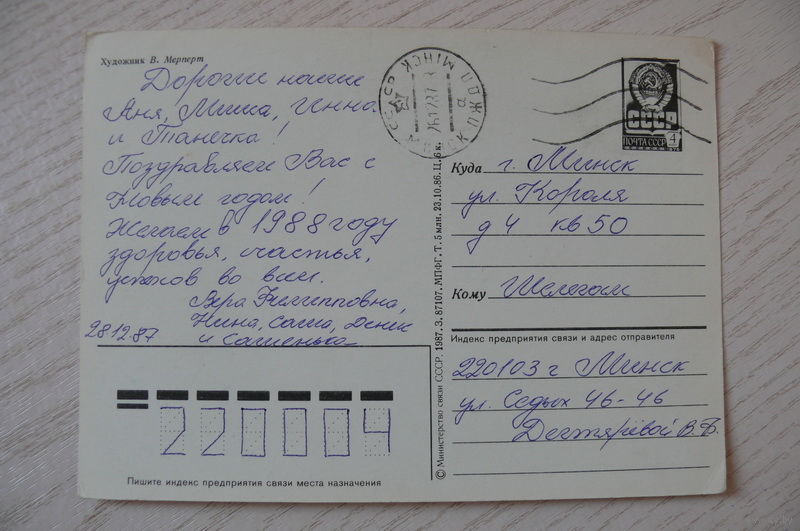 Художник В. Мерперт
Дорогие наши
Аня, Миша, Инна
и Танечка!
Поздравляем Вас с
Новым годом!
Желаем в 1988 году
здоровья, счастья,
успехов во всем.
Вера Филипповна,
Нина, Саша, Денис
и Сашенька
28.12.87
МІНСК ПОЖД
МИНСК ПЖД
СССР
ПОЧТА СССР 4
Куда г. Минск
ул. Короля
д 4 кв 50
Кому Шелегам
Индекс предприятия связи и адрес отправителя
220103 г Минск
ул. Седых 46-46
Дегтярёвой В.Ф.
220004
Пишите индекс предприятия связи места назначения
© Министерство связи СССР. 1987. З. 87107. МПФГ. Т. 5 млн. 23.10.86. Ц. 6 к.